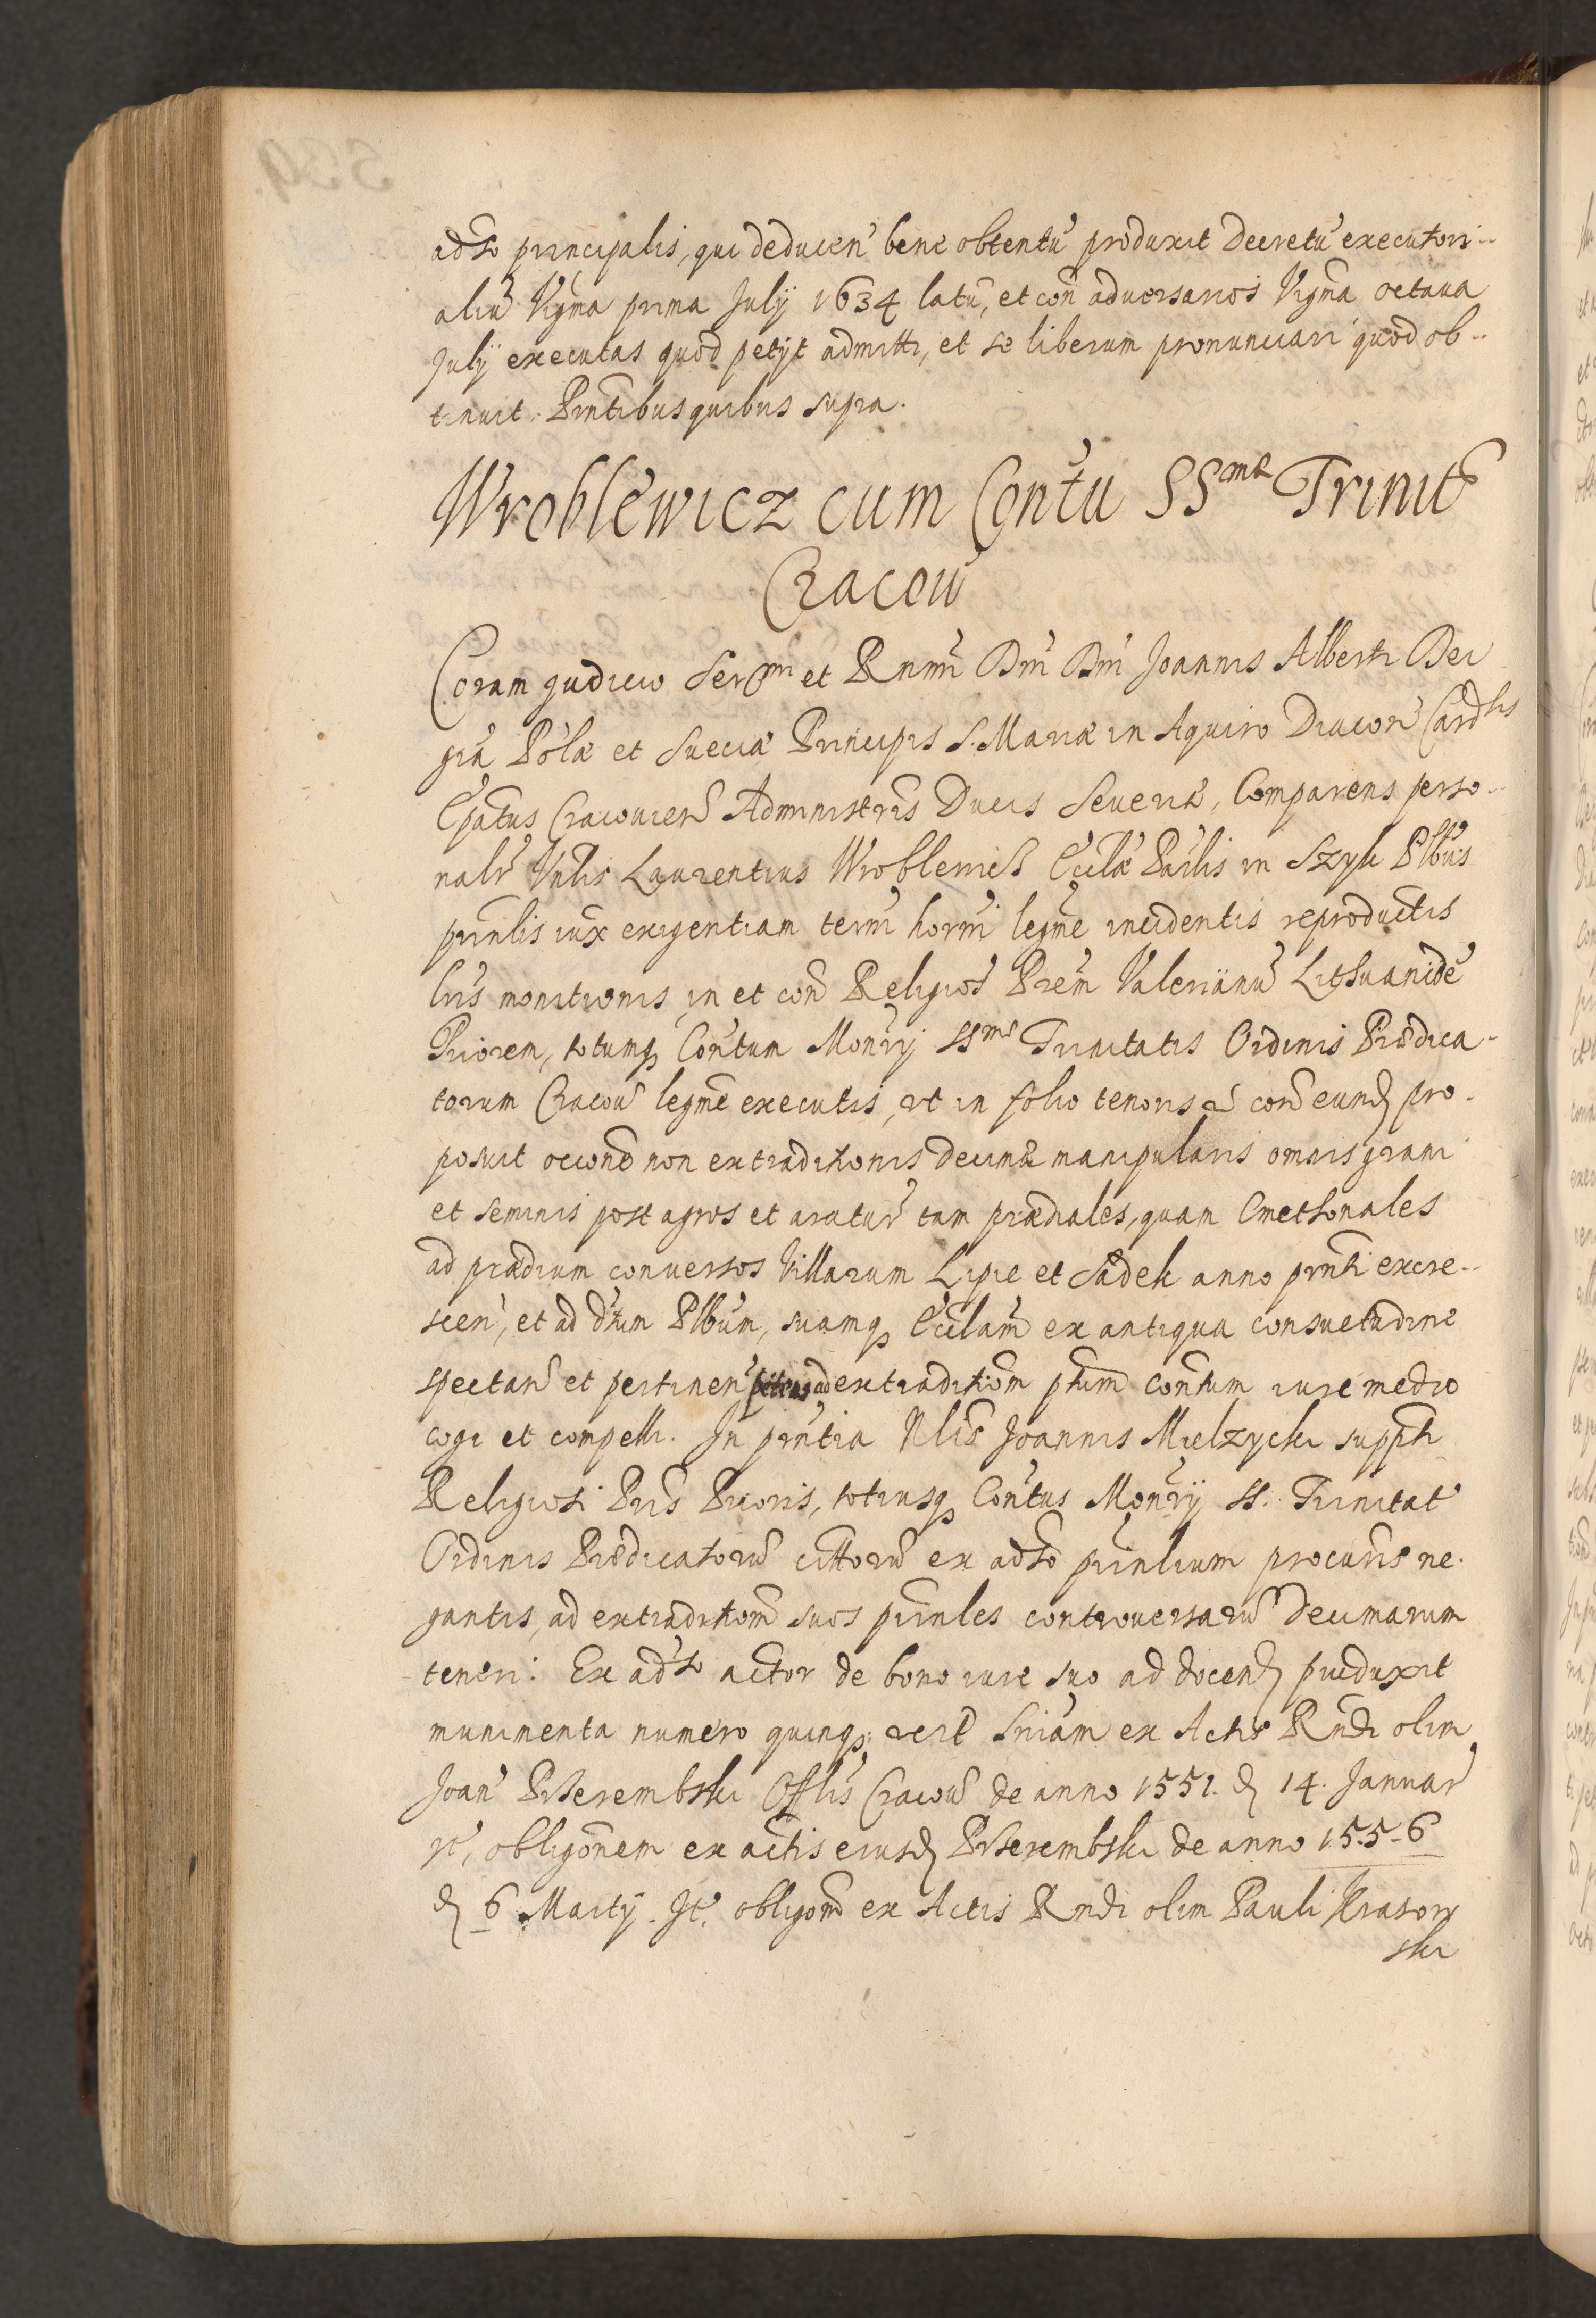 adso principalis, qui deducen bene obtentū produxit Decretū executori-
aliū Vigña prima July 1634 latū, et coñ aduersarios Vigña octaua
July executas quod petÿt admitti, et se liberum pronunciari quod ob-
tinuit. Pñtibus quibus supra.
Wroblewicz cum Contu SSmæ Trinit
Cracou
Coram Judicio Sermi et Rñmi Dñi Dñi Joannis Alberti Dei
gra Polæ et Sueciæ Principis S. Mariæ in Aquiro Diacon Cardlis
Epatus Cracouien Administris Ducis Seueriæ, Comparens perso-
nalr Vnlis Laurentius Wroblewicz Ecclæ Parlis in Szyk Plbus
prinlis iux exigentiam termi hormi legme incidentis reproductis
lris monitionis in et con Religiosū Prem Valerianū Lithuanide
Priorem, totumq Contum Monrÿ SSmæ Trinitatis Ordinis Prædica-
torum Cracou legme executis, vt in folio tenoris cord eund pro-
posuit occone non extraditionis decimæ manipularis omnis grani
et seminis post agros et aratur tam prædiales, quam Cmethonales
ad prædium conuersos Villarum Lipie et Sadek anno pñti excre-
scen, et ad dtum Plbum, suamq Ecclam ex antiqua consuetudine
spectan et pertinen petens ad extraditiom ptum contum iure medio
cogi et compelli. In pntia Nlis Joannis Mielzycki supph
Religiosi Pris Prioris, totiusq Contus Monrÿ SS. Trinitat
Ordinis Prædicatorū cittorū ex adso prinlium procuris ne-
gantis, ad extraditiom suos prinles controuersarū Decimarum
teneri. Ex adso actor de bono iure suo ad docend produxit
munimenta numero quinq; Sniam ex Actis Rndi olim
Joan Przerembski Offlis Cracou de anno 1551. d 14. Januar
It, obligonem ex actis eiusd Przerembski de anno 15-5-6
d 6 Martÿ. It, obligom ex Actis Rndi olim Pauli Krasow
ski